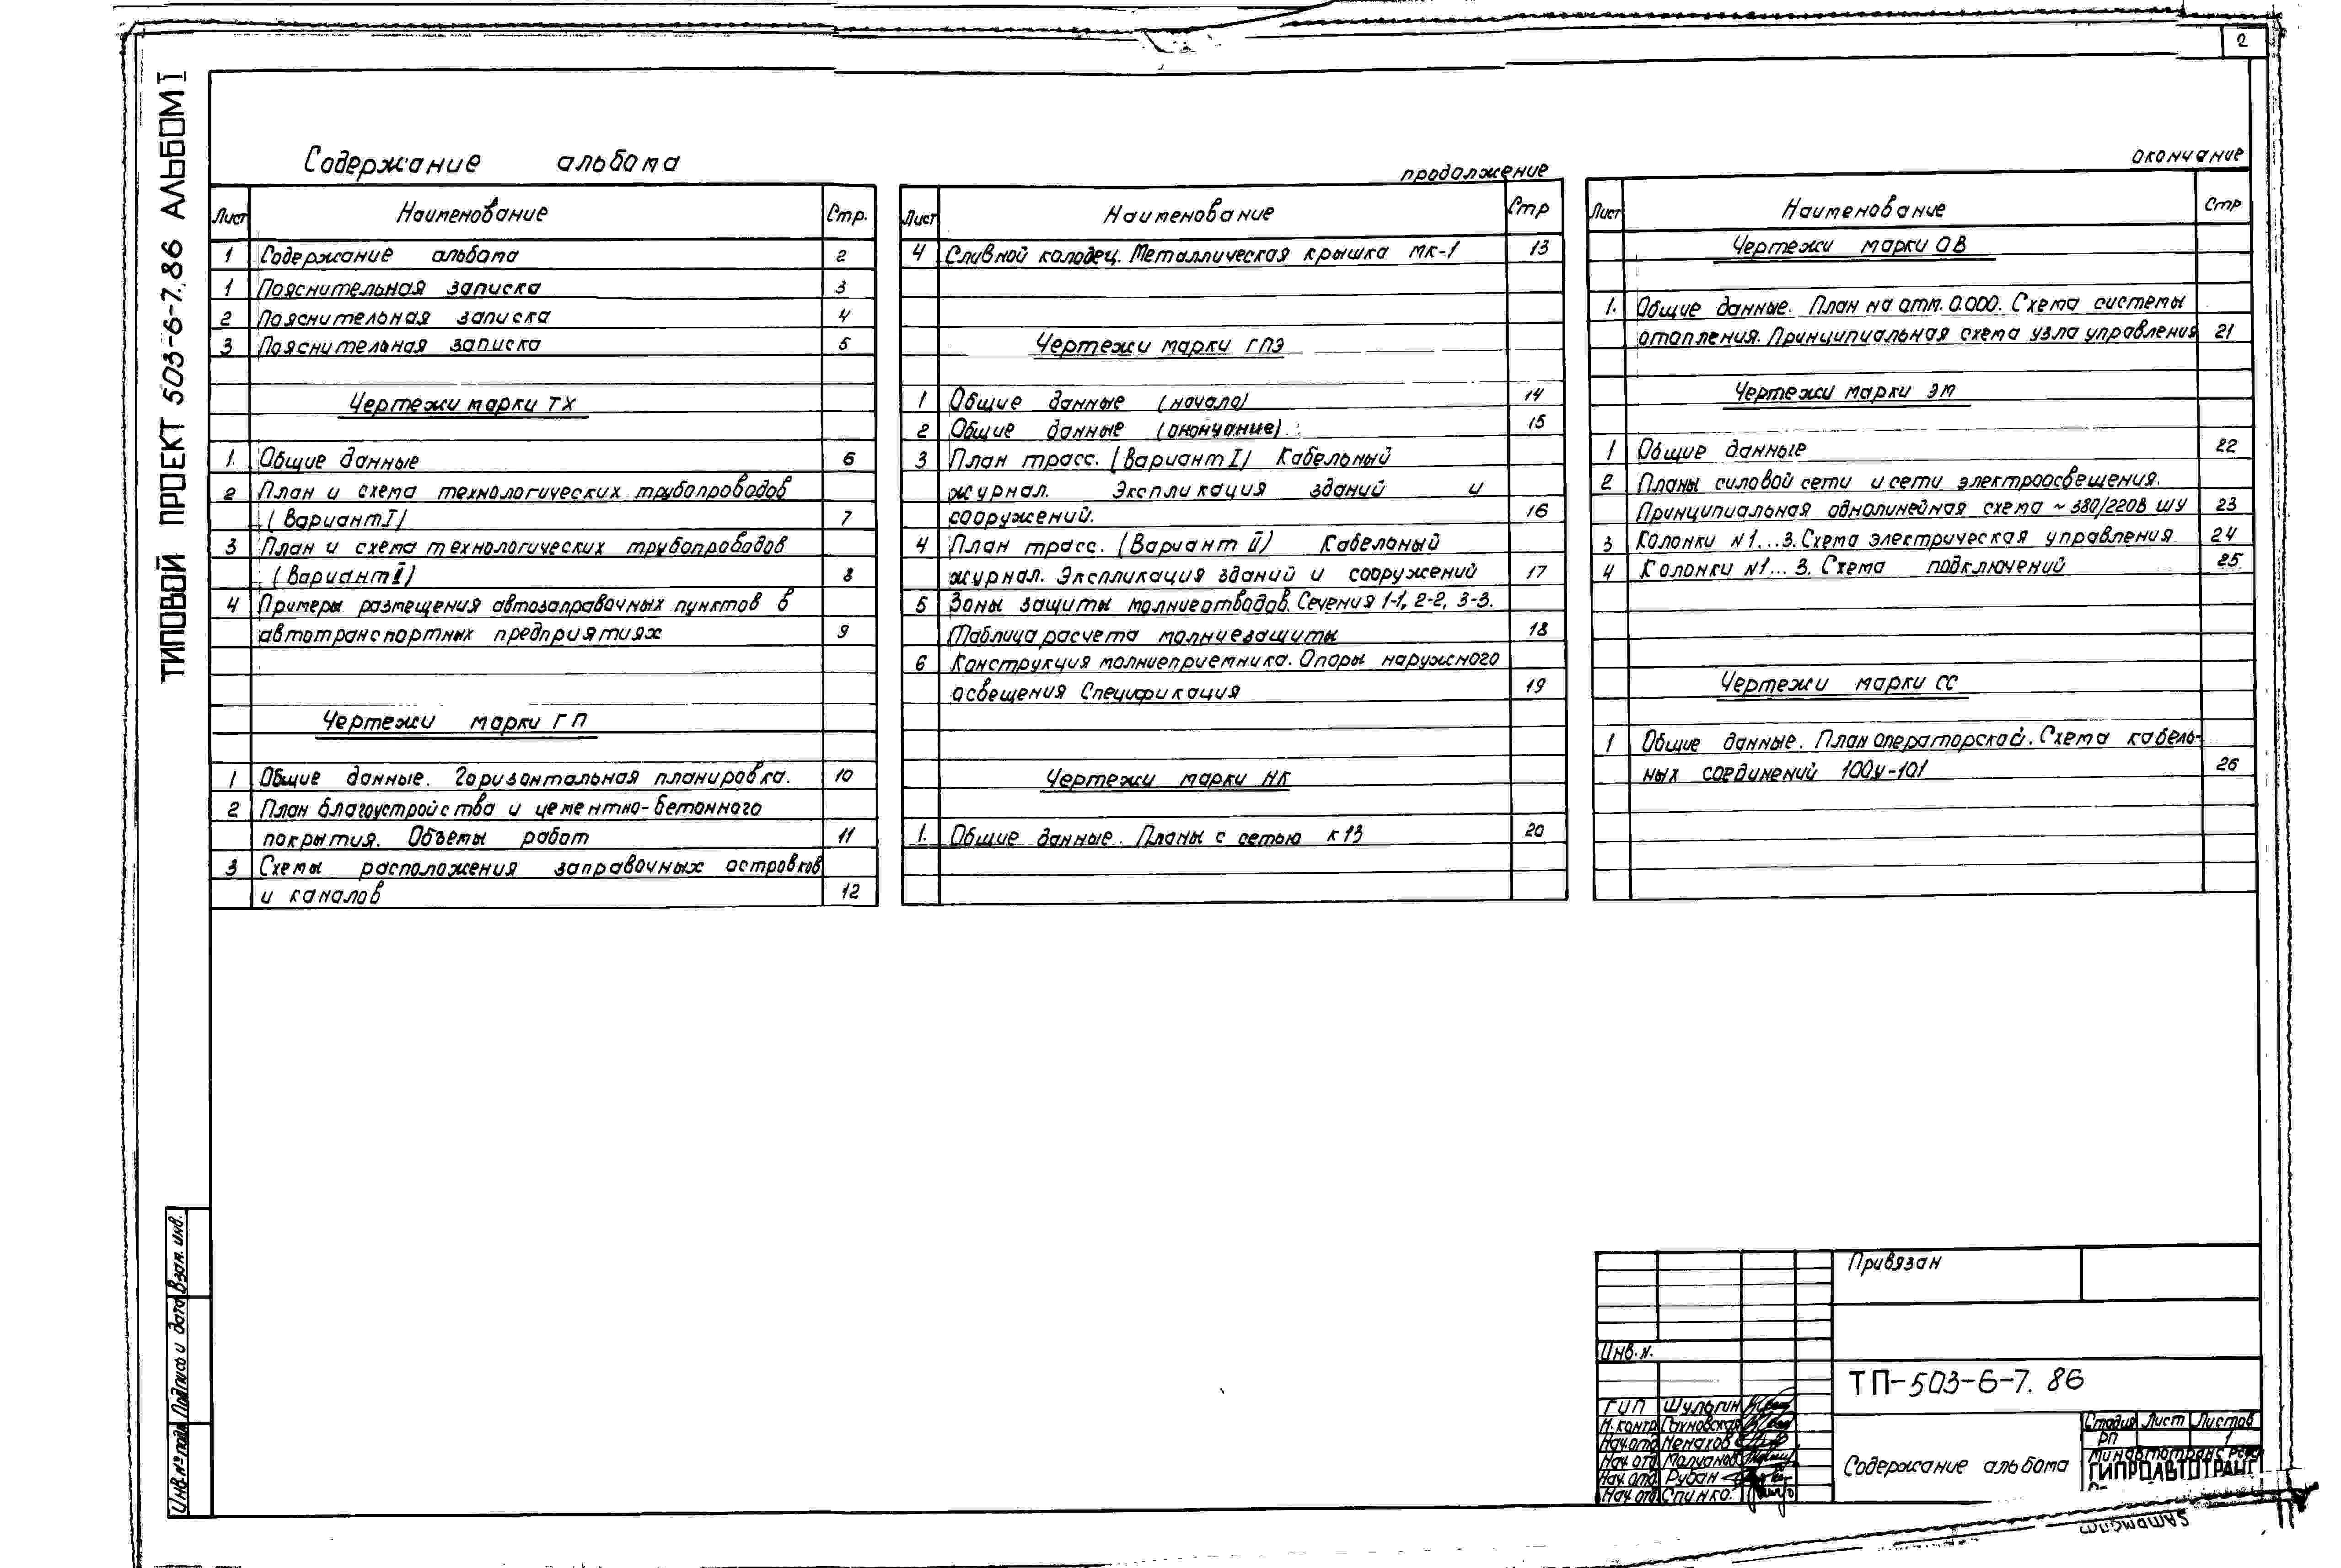 2
ТИПОВОЙ ПРОЕКТ 503-6-7.86 АЛЬБОМ I
Содержание альбома
Лист Наименование Стр.
1 Содержание альбома 2
1 Пояснительная записка 3
2 Пояснительная записка 4
3 Пояснительная записка 5
Чертежи марки ТХ
1. Общие данные 6
2 План и схема технологических трубопроводов
(Вариант I) 7
3 План и схема технологических трубопроводов
(Вариант II) 8
4 Примеры размещения автозаправочных пунктов в
автотранспортных предприятиях 9
Чертежи марки ГП
1 Общие данные. Горизонтальная планировка. 10
2 План благоустройства и цементно-бетонного
покрытия. Объемы работ 11
3 Схемы расположения заправочных островков
и каналов 12
продолжение
Лист Наименование Стр
4 Сливной колодец. Металлическая крышка МК-1 13
Чертежи марки ГПЭ
1 Общие данные (начало) 14
2 Общие данные (окончание). 15
3 План трасс. (Вариант I) Кабельный
журнал. Экспликация зданий и
сооружений. 16
4 План трасс. (Вариант II) Кабельный
журнал. Экспликация зданий и сооружений 17
5 Зоны защиты молниеотводов. Сечения 1-1, 2-2, 3-3.
Таблица расчета молниезащиты 18
6 Конструкция молниеприемника. Опоры наружного
освещения Спецификация 19
Чертежи марки НК
1. Общие данные. Планы с сетью К13 20
окончание
Лист Наименование Стр
Чертежи марки ОВ
1. Общие данные. План на отм. 0.000. Схема системы
отопления. Принципиальная схема узла управления 21
Чертежи марки ЭМ
1 Общие данные 22
2 Планы силовой сети и сети электроосвещения.
Принципиальная однолинейная схема ~380/220В ШУ 23
3 Колонки N1...3. Схема электрическая управления 24
4 Колонки N1...3. Схема подключений 25
Чертежи марки СС
1 Общие данные. План операторской. Схема кабель-
ных соединений 100У-101 26
Взам. инв.
Подпись и дата
Инв. № подл.
Привязан
Инв. N.
ТП-503-6-7.86
ГИП Шульгин
Н. контр Сахновская
Нач. отд Ненахов
Нач. отд
Нач. отд. Рубан
Нач. отд. Спинко.
Содержание альбома
Стадия Лист Листов
РП 1
Минавтотранс РСФСР
ГИПРОАВТОТРАНС